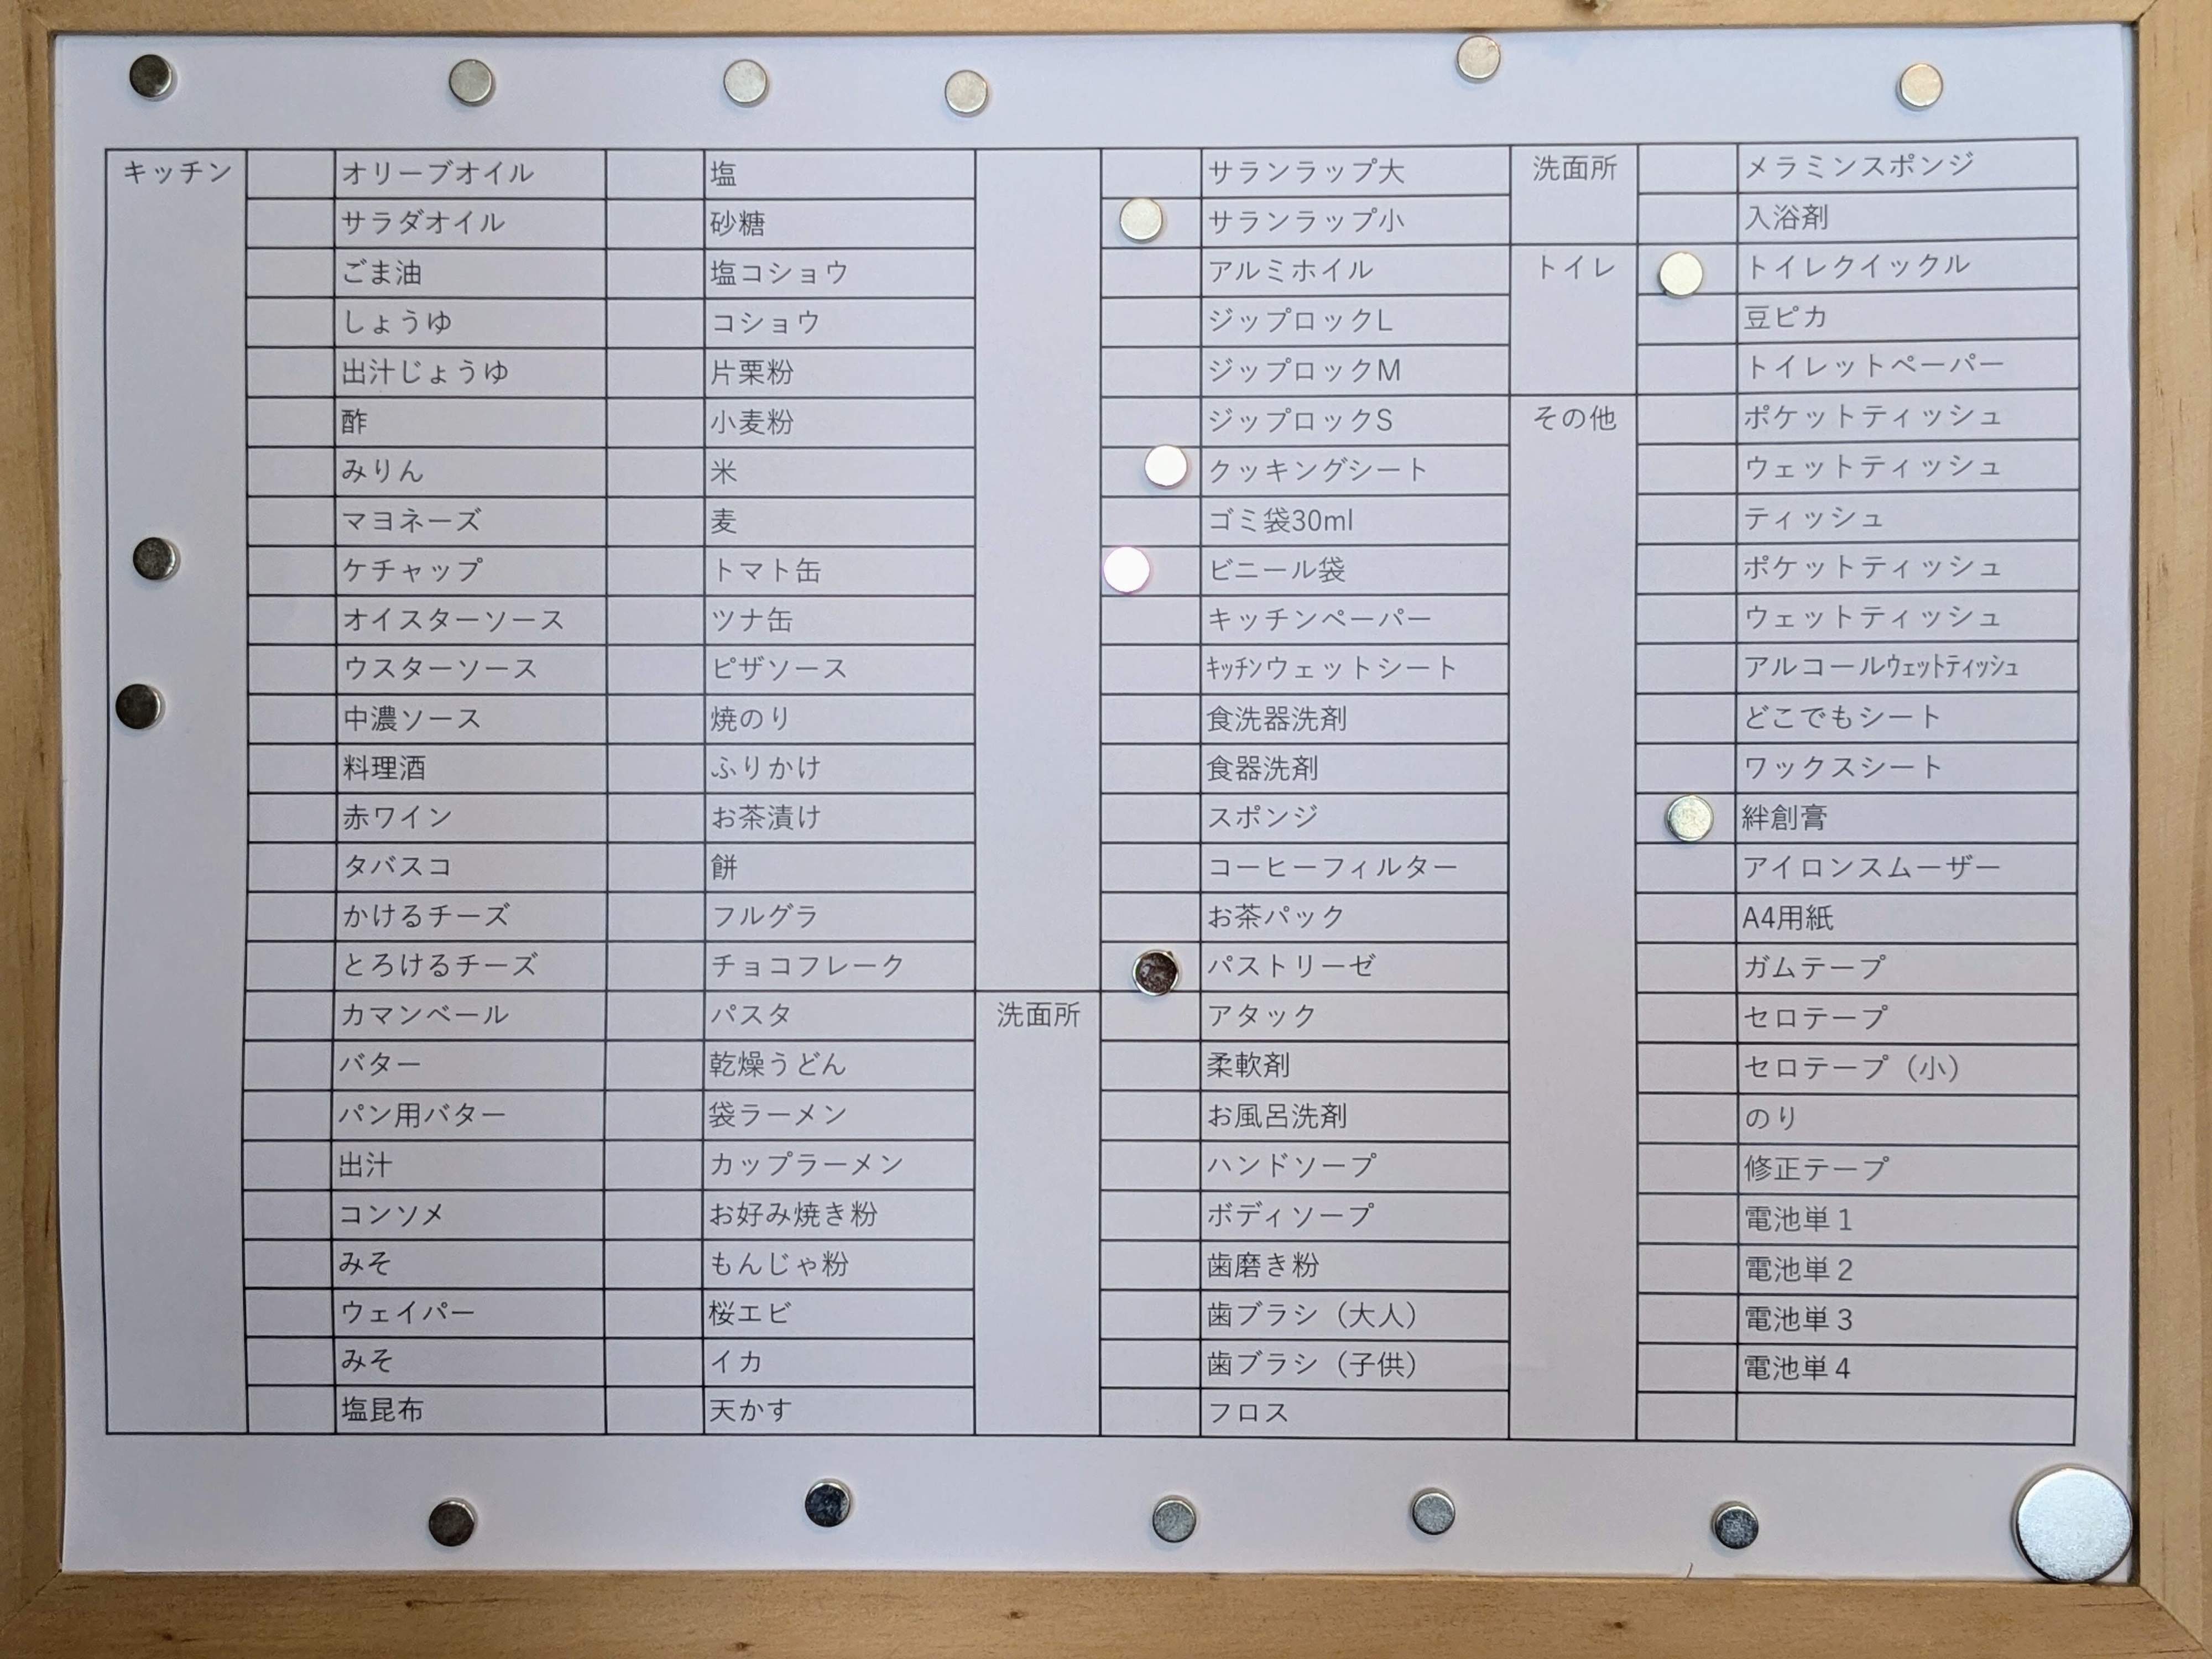 キッチン
オリーブオイル
サラダオイル
ごま油
しょうゆ
出汁じょうゆ
酢
みりん
マヨネーズ
ケチャップ
オイスターソース
ウスターソース
中濃ソース
料理酒
赤ワイン
タバスコ
かけるチーズ
とろけるチーズ
カマンベール
バター
パン用バター
出汁
コンソメ
みそ
ウェイパー
みそ
塩昆布
塩
砂糖
塩コショウ
コショウ
片栗粉
小麦粉
米
麦
トマト缶
ツナ缶
ピザソース
焼のり
ふりかけ
お茶漬け
餅
フルグラ
チョコフレーク
パスタ
乾燥うどん
袋ラーメン
カップラーメン
お好み焼き粉
もんじゃ粉
桜エビ
イカ
天かす
サランラップ大
サランラップ小
アルミホイル
ジップロックL
ジップロックM
ジップロックS
クッキングシート
ゴミ袋30ml
ビニール袋
キッチンペーパー
ｷｯﾁﾝウェットシート
食洗器洗剤
食器洗剤
スポンジ
コーヒーフィルター
お茶パック
パストリーゼ
洗面所
アタック
柔軟剤
お風呂洗剤
ハンドソープ
ボディソープ
歯磨き粉
歯ブラシ（大人）
歯ブラシ（子供）
フロス
洗面所
メラミンスポンジ
入浴剤
トイレ
トイレクイックル
豆ピカ
トイレットペーパー
その他
ポケットティッシュ
ウェットティッシュ
ティッシュ
ポケットティッシュ
ウェットティッシュ
アルコールｳｪｯﾄﾃｨｯｼｭ
どこでもシート
ワックスシート
絆創膏
アイロンスムーザー
A4用紙
ガムテープ
セロテープ
セロテープ（小）
のり
修正テープ
電池単１
電池単２
電池単３
電池単４